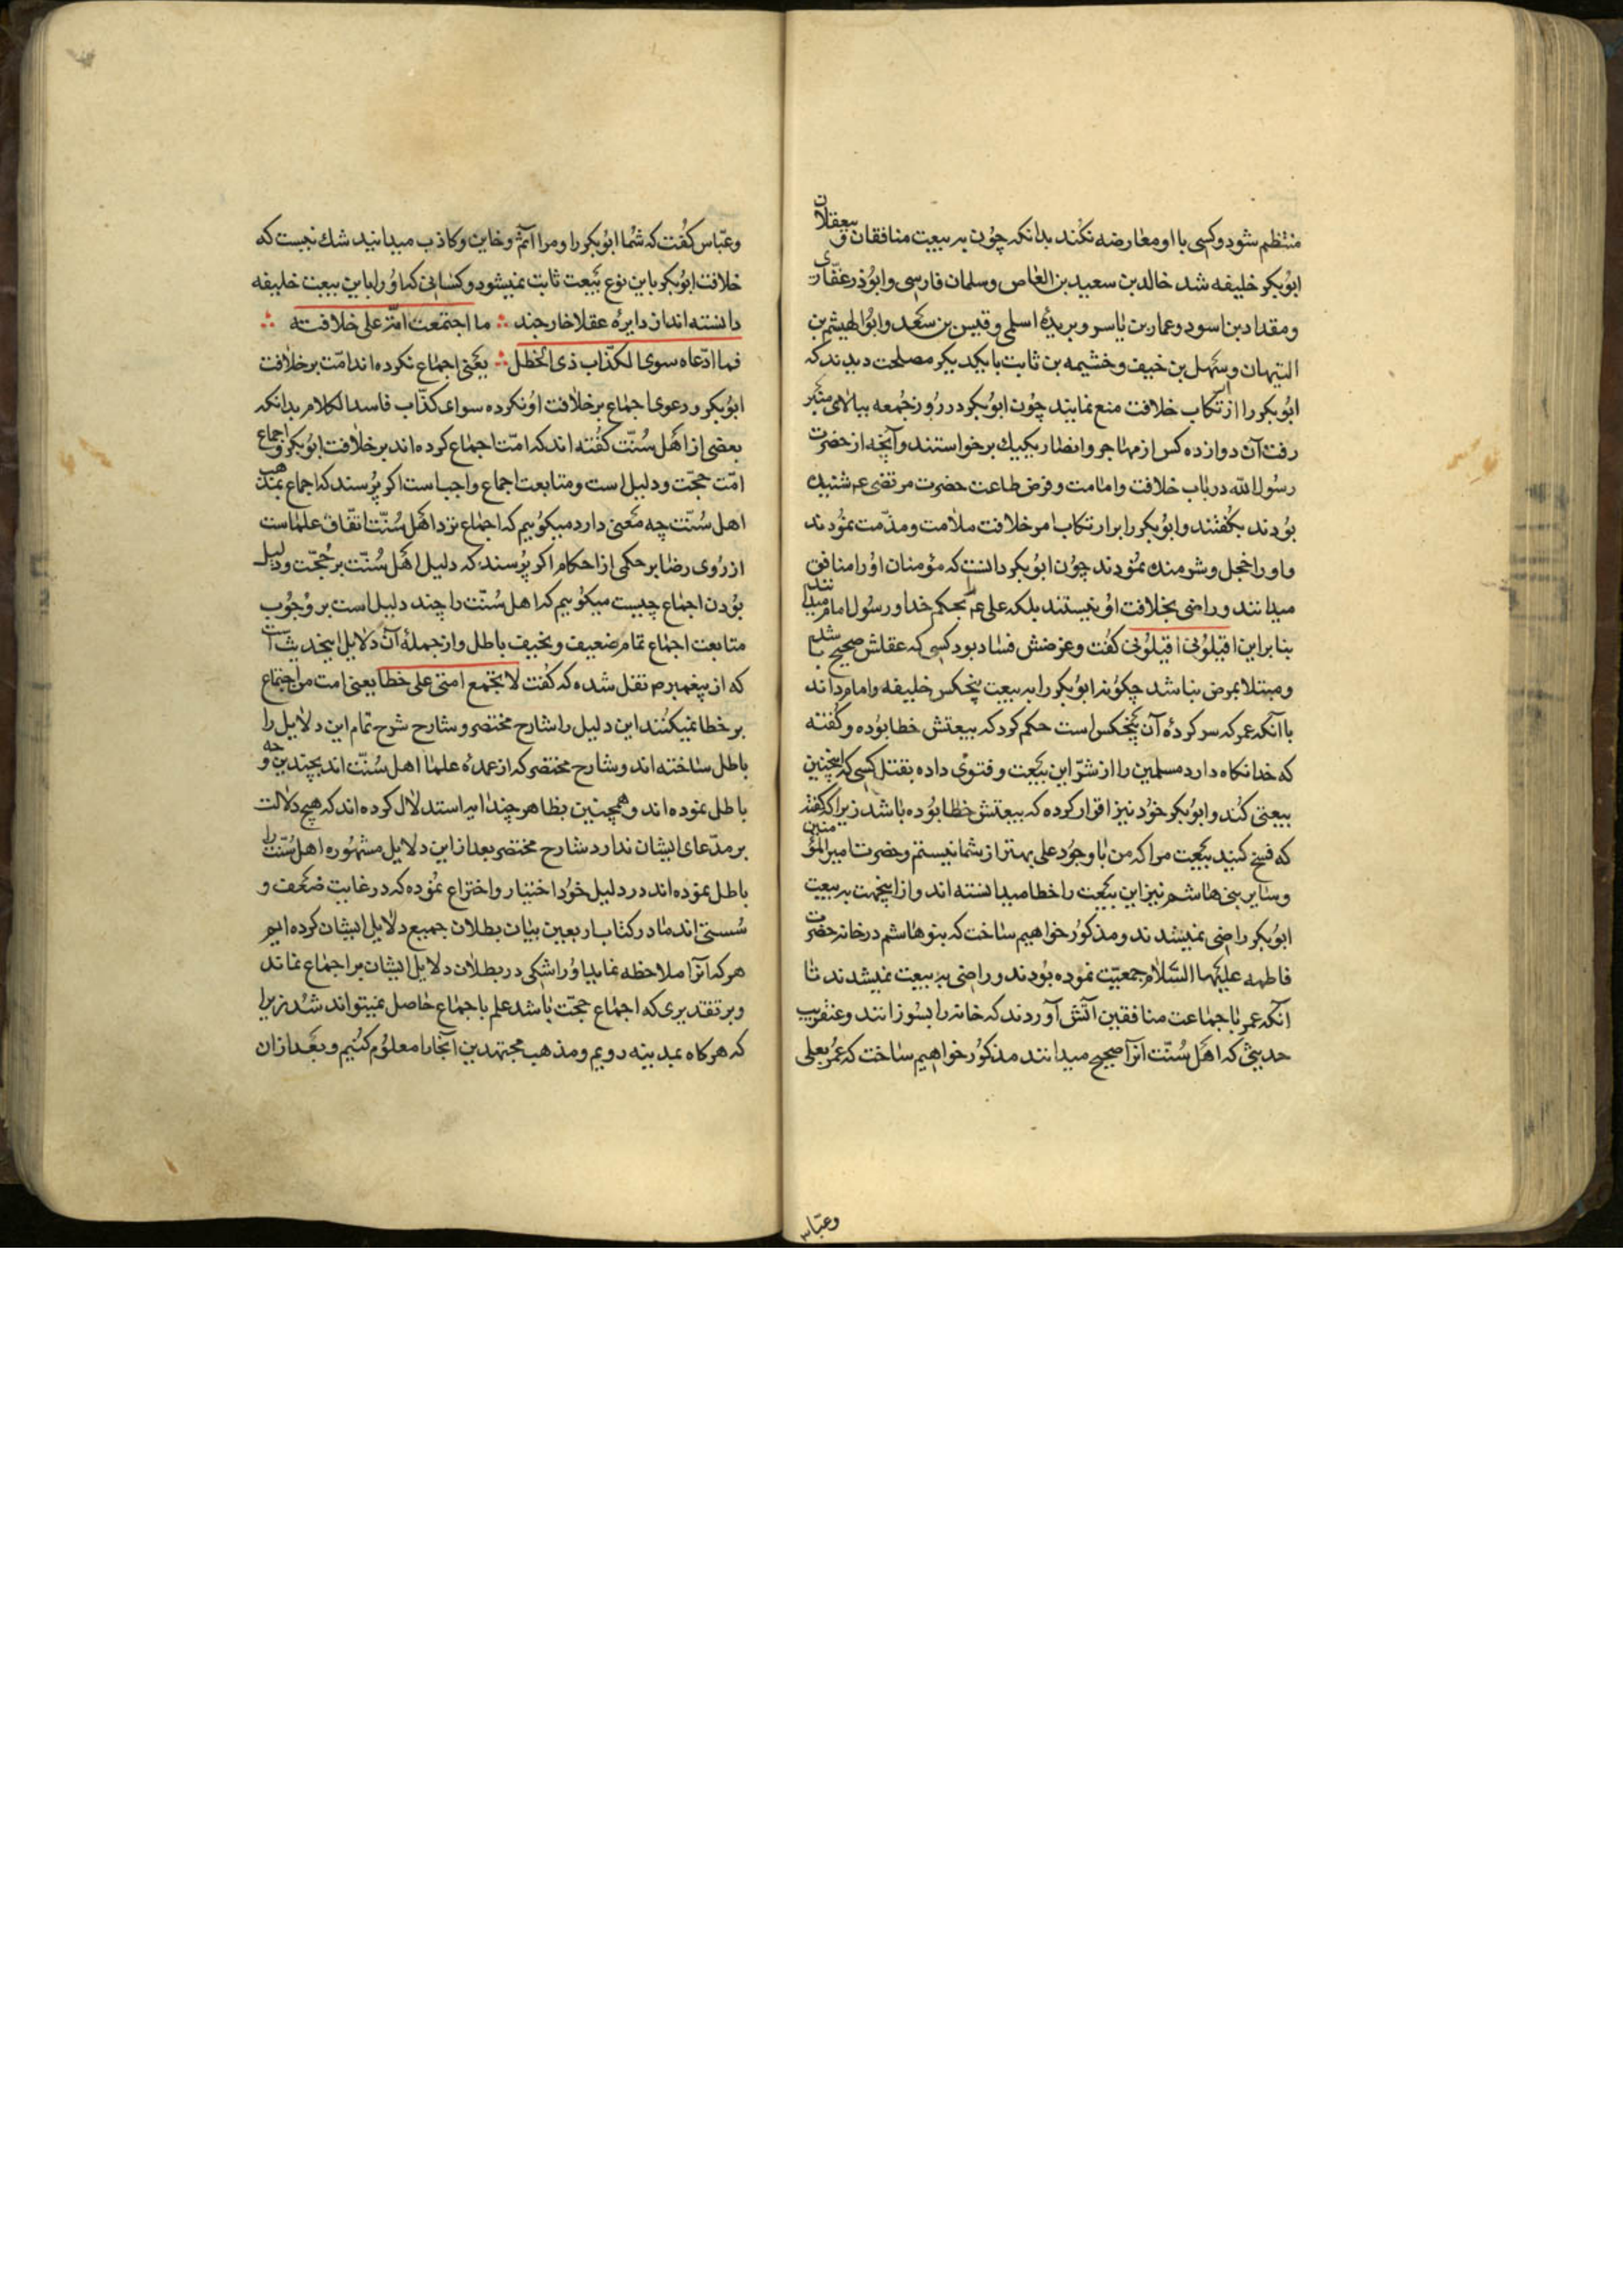 منتظم شود و کسی با او معارضه نکند بدانکه چون به بیعت منافقان و بیعقلان
ابوبکر خلیفه شد خالد بن سعید بن العاص و سلمان فارسی و ابوذر غفاری
و مقداد بن اسود و عمار بن یاسر و بریدهٔ اسلمی و قیس بن سعد و ابوالهیثم بن
التیهان و سهل بن حنیف و خشیمه بن ثابت با یکدیکر مصلحت دیدند که
ابوبکر را از ارتکاب خلافت منع نمایند چون ابوبکر در روز جمعه ببالای منبر
رفت آن دوازده کس از مهاجر و انصار یکیک برخواستند و آنچه از حضرت
رسول الله در باب خلافت و امامت و فرض طاعت حضرت مرتضی عم شنیده
بودند بکفتند و ابوبکر را بر ارتکاب امر خلافت ملامت و مذمت نمودند
و او را خجل و شرمنده نمودند چون ابوبکر دانست که مؤمنان او را منافق
میدانند و راضی بخلافت او نیستند بلکه علی عم را بحکم خدا و رسول امام میدانند
بنا بر این اقیلونی اقیلونی کفت و غرضش فساد بود کسی که عقلش صحیح باشد
و مبتلا بمرض نباشد چکونه ابوبکر را به بیعت پنجکس خلیفه و امام داند
با آنکه عمر که سر کردهٔ آن پنجکس است حکم کرد که بیعتش خطا بوده و کفته
که خدا نکاه دارد مسلمین را از شر این بیعت و فتوی داده بقتل کسی که اینچنین
بیعتی کند و ابوبکر خود نیز اقرار کرده که بیعتش خطا بوده باشد زیرا که کفته
که فسخ کنید بیعت مرا که من با وجود علی بهتر از شما نیستم و حضرت امیر المؤمنین
و سایر بنی هاشم نیز این بیعت را خطا میدانسته اند و از اینجهت به بیعت
ابوبکر راضی نمیشدند و مذکور خواهیم ساخت که بنو هاشم در خانه حضرت
فاطمه علیها السلام جمعیت نموده بودند و راضی به بیعت نمیشدند تا
آنکه عمر با جماعت منافقین آتش آوردند که خانه را بسوزانند و عنقریب
حدیثی که اهل سنت آنرا صحیح میدانند مذکور خواهیم ساخت که عمر بعلی
وعباس
و عباس کفت که شما ابوبکر را و مرا آثم و خاین و کاذب میدانید شك نیست که
خلافت ابوبکر باین نوع بیعت ثابت نمیشود و کسانی که او را باین بیعت خلیفه
دانسته اند از دایره عقلا خارجند ∴ ما اجتمعت امة علی خلافته ∴
فما ادعاه سوی الکذاب ذی الخطل ∴ یعنی اجماع نکرده اند امت بر خلافت
ابوبکر و دعوی اجماع بر خلافت او نکرده سوای کذاب فاسد الکلام بدانکه
بعضی از اهل سنت کفته اند که امت اجماع کرده اند بر خلافت ابوبکر و اجماع
امت حجت و دلیل است و متابعت اجماع واجب است اکر پرسند که اجماع بمذهب
اهل سنت چه معنی دارد میکوییم که اجماع نزد اهل سنت اتفاق علماست
از روی رضا بر حکمی از احکام اکر پرسند که دلیل اهل سنت بر حجت و دلیل
بودن اجماع چیست میکوییم که اهل سنت را چند دلیل است بر وجوب
متابعت اجماع تمام ضعیف و نحیف باطل و از جملهٔ آن دلایل اینحدیث است
که از پیغمبر ص نقل شده که کفت لا یجتمع امتی علی خطا یعنی امت من اجتماع
بر خطا نمیکنند این دلیل را شارح مختصر و شارح شرح تمام این دلایل را
باطل ساخته اند و شارح مختصر که از عمدهٔ علما اهل سنت اند بچندین وجه
باطل نموده اند و همچنین بظاهر چند آیه استدلال کرده اند که هیچ دلالت
بر مدعای ایشان ندارد شارح مختصر بعد از این دلایل مشهوره اهل سنت را
باطل نموده اند در دلیل خود اختیار و اختراع نموده که در غایت ضعف و
سستی اند ما در کتاب اربعین بیان بطلان جمیع دلایل ایشان کرده ایم
هر که آنرا ملاحظه نماید او را شکی در بطلان دلایل ایشان بر اجماع نماند
و بر تقدیری که اجماع حجت باشد علم باجماع حاصل نمیتواند شد زیرا
که هرکاه بمدینه رویم و مذهب مجتهدین آنجا را معلوم کنیم و بعد از ان